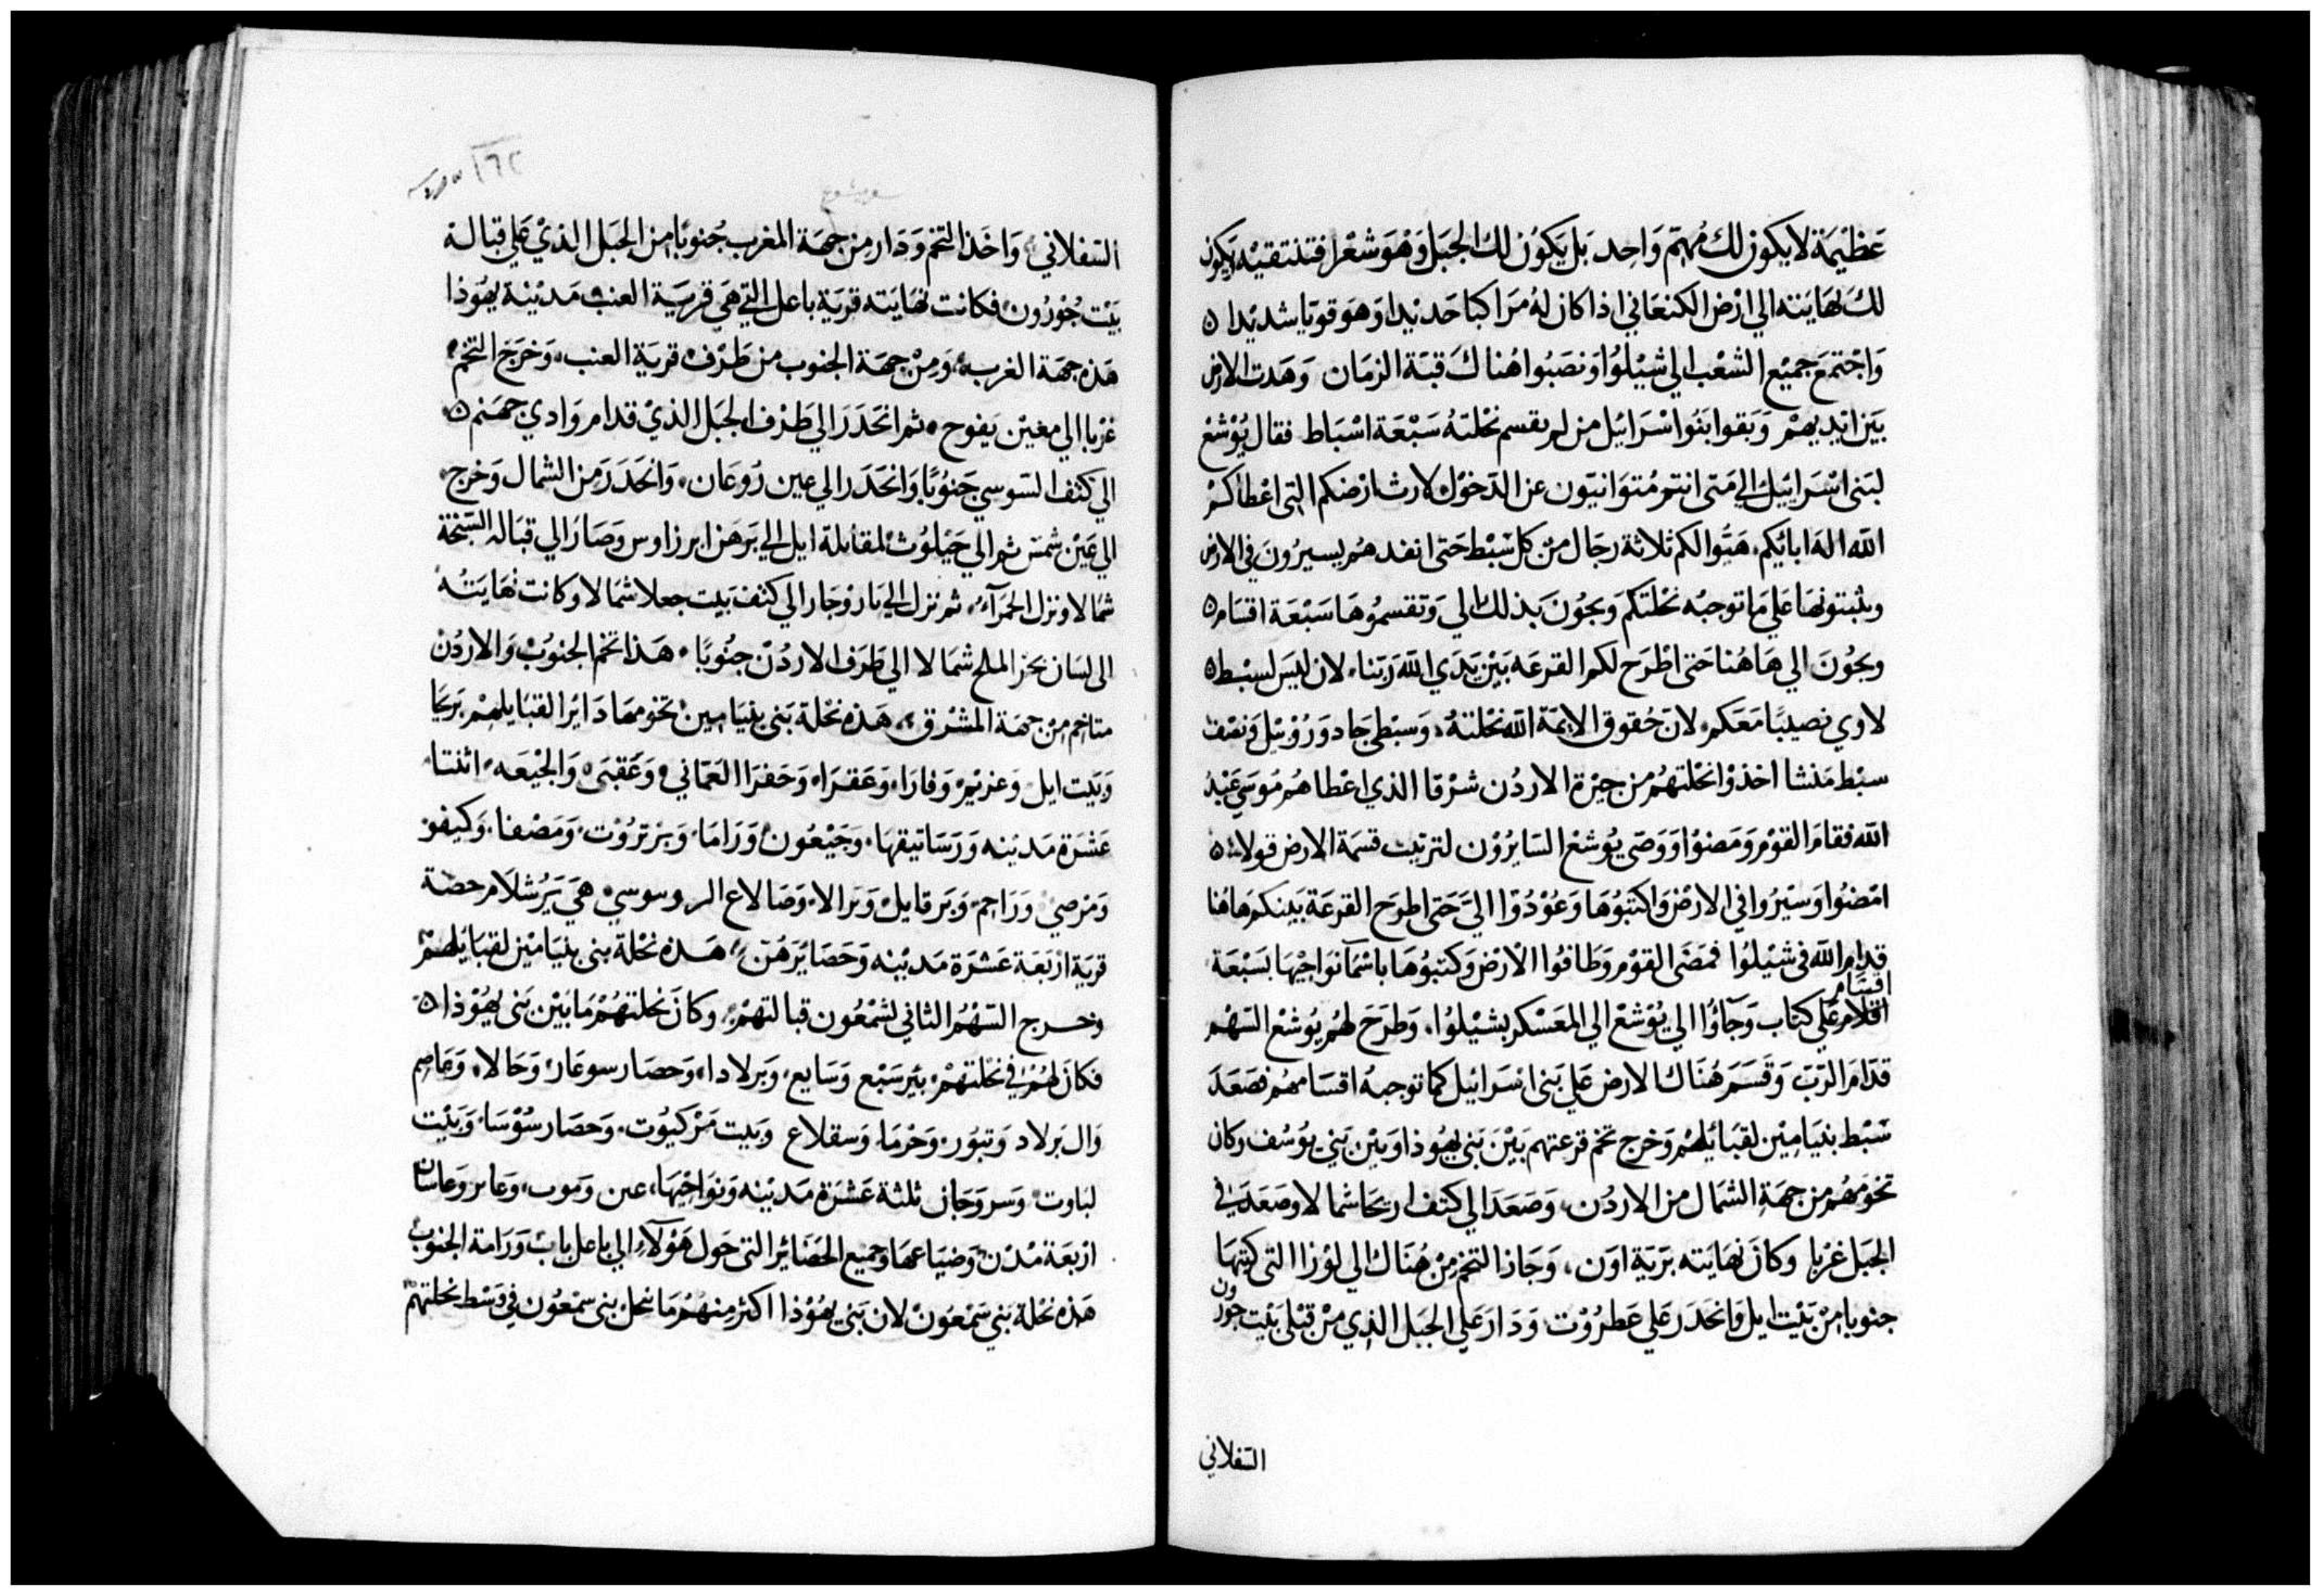 عَظِيْمَة لايكون لكَ مُهِمّ وَاحِد بَل يَكوُن لك الجبَل وَهْوَ شعْرا فتنتقيْه ويكون
لكَ نهايَته الي ارْض الكنعَاني اذا كان لهُ مَراكبا حَديْدا وَهوَ قويّا شديْدا ٥
وَاجْتمَعَ جميْع الشعْب الي شيْلوُا وَنصَبُوا هُناكَ قبَة الزمَان وَهَدت الارض
بَين ايْديهمْ وَبَقوا بَنوُا اسْرَائيْل من لم يقسم نحْلتهُ سَبْعَة اسْبَاط فقال يُوْشعْ
لبَنى اسْرَائيْل الي مَتى انتم مُتوَانيّون عن الدّخوُل لارث ارْضكم التى اعْطاكمْ
الله اله ابايْكم هَيّوا لكم ثلاثة رجَال منْ كل سَبْط حَتى انفدهم يسيرُونَ في الارض
ويثبتونهَا عَلي مَا توجبْه نحْلتكم وَيجوُنَ بذلك الي وَتقسموُهَا سَبْعَة اقسَام ٥
ويجوُنَ الي هَاهُنا حَتى اطْرَح لكم القرعَه بَيْن يَدَي الله رَبّنا لان ليَس لسبْط ٥
لاوي نصيْبًا مَعَكم لانّ حُقوق الايمَة الله نحْلتهُ وَسبْطي جَاد وَرُوْبيْل وَنصْف
سبْط مَنشا اخذوْا نحْلتهُم من جيْزة الاردُن شرْقا الذي اعْطاهُم مُوسَي عَبْد
الله فقامَ القوْم وَمَضوْا وَوَصّى يُوشعْ السّايرُوْن لترتيْب قسمَة الارض قولا ٥
امْضوُا وَسيْرُوا في الارْض وَاكتبُوُهَا وَعُوْدُوْا اليَّ حَتى اطرَح القرعَة بَينكم هَاهُنا
قدامِ الله في شيْلوُا فمَضَى القوْم وَطافوُا الارْض وَكتبوُهَا باسْمَا نوَاحيْهَا بسَبْعَة
اقسَام
اقلام عَلي كتاب وَجَآوُا الي يُوْشعْ الي المَعَسْكر بشيْلوُا وَطرَحَ لهُم يُوشعْ السّهْم
قدّامَ الرّبّ وَقسَمَ هُنَاك الارض عَلي بَنى اسْرَائيْل كما توجبهُ اقسَامهُم فصَعَدَ
سَبْط بنيَامِيْن لقبَايْلهمْ وَخرج تخم قرعتهم بَيْنَ بَنى يَهُوذا وَبَيْن بَني يُوسُف وكان
تخومَهُم من جهَةِ الشمَال من الاردُن وَصَعَدَ الي كتف اريحَا شمالا وَصَعَدَ في
الجبَل غرْبا وكانَ نهَايَته برّية اون، وَجَاز التخم مِنْ هُنَاك الي لوُزا التى كتفهَا
جنوبا مِنْ بَيْت ايْل وَانحَدَرَ عَلي عَطرُوْت وَدَارَ عَلي الجبَل الذِي منْ قبْلي بَيْت حُورون
السّفلاني
١٦٢
سفر يشوع
السّفلاني، وَاخَذ التخم وَدَار من جهَة المغرب جُنوبًا من الجبَل الذيْ عَلي قبَالة
بَيْت جُوْرُون فكانت نهَايَته قريَة باعل التي هَي قريَة العنب مَديْنة يهُوذا
هَذه جهَة الغرب، وَمِنْ جهَة الجنوب من طَرْف قريَة العنب، وَخرَجَ التخم
غرْبا الي معيْن يَفوح ثم انحَدَرَ الي طَرْف الجبَل الذيْ قدام وَادي جهَنم ٥
الي كتف السّوسي جَنوُبًا وَانحَدَرَ الي عين رُوعَان، وَانحَدَرَ من الشمال وَخرج
الي عَيْن شمسْ ثم الي جَيْلوُثْ لمقابلة ايل الي بَرهَن ابرزاوس وَصَارَ الي قبَاله السّبْخة
شمالا وَنزل الحمرَآء، ثم نزل الي بَار وْجَار الي كتف بَيت جعلا شمَالا وكانت نهَايَتهُ
الى لسَان بحْر الملح شمَالا الي طَرَف الاردُنّ جنُوبًا، هَذا تخم الجنوُبْ وَالاردُنْ
متاخم مِنْ جهَة المشْرق، هَذه نحْلة بَنى بنيَامِيْن تخومهَا دَائرا لقبَايلهمْ بَريحَا
وَبَيت ايل وَعزبَيْر وَفارَا وَعَقرَا وَحَفرَا العَمّاني وَعَقْبَى وَالجيْعَه اثنتا
عَشرَة مَديْنه وَرَسَاتيقهَا، وَجَيْعُون وَرَامَا وَبَرْتُرُوْت وَمَصْفا وَكيفو
وَمَرصي وَرَاجِم وَبَرقايل وَبَرالا وَصَالاع الروسوسي هيَ يَرُشلَام حصة
قريَة ارْبَعَة عَشرَة مَديْنه وَحَصَائرَهُنّ هَذه نحْلة بنى بنيَامْين لقبَايْلهمْ
وخرج السّهْمُ الثاني لشمْعُون قبالتهمْ، وكانَ نحْلتهُمْ مَا بَيْن بَنى يهُوْذا ٥
فكانَ لهُمْ في نحْلتهُمْ بيرسَبْع وَسَايع وَبرلادا وَحصَار سوعَار وَحَالا وَعَاصِم
وَال بَرلاد وَتبوُر وَحْرمَا وَسقلاع وَبيت مَرْكيُوت، وَحصَار سُوْسَا وَبَيْت
لبَاوت وَسروَحَان ثلثة عَشرَة مَديْنه وَنوَاحيْهَا، عين وَموب، وَعابر وَعَاسان
ارْبعَة مُدُن وَضيَاعهَا وَجَميْع الحَصَائر التى حَول هَوُلآء الي باعل باب وَرَامة الجنوُب
هَذه نحْلة بَني سَمْعَون لان بَنى يَهُوْذا اكثر مِنهُمْ مَا نحل بنى سمْعُون في وَسْط نحلتهمْ